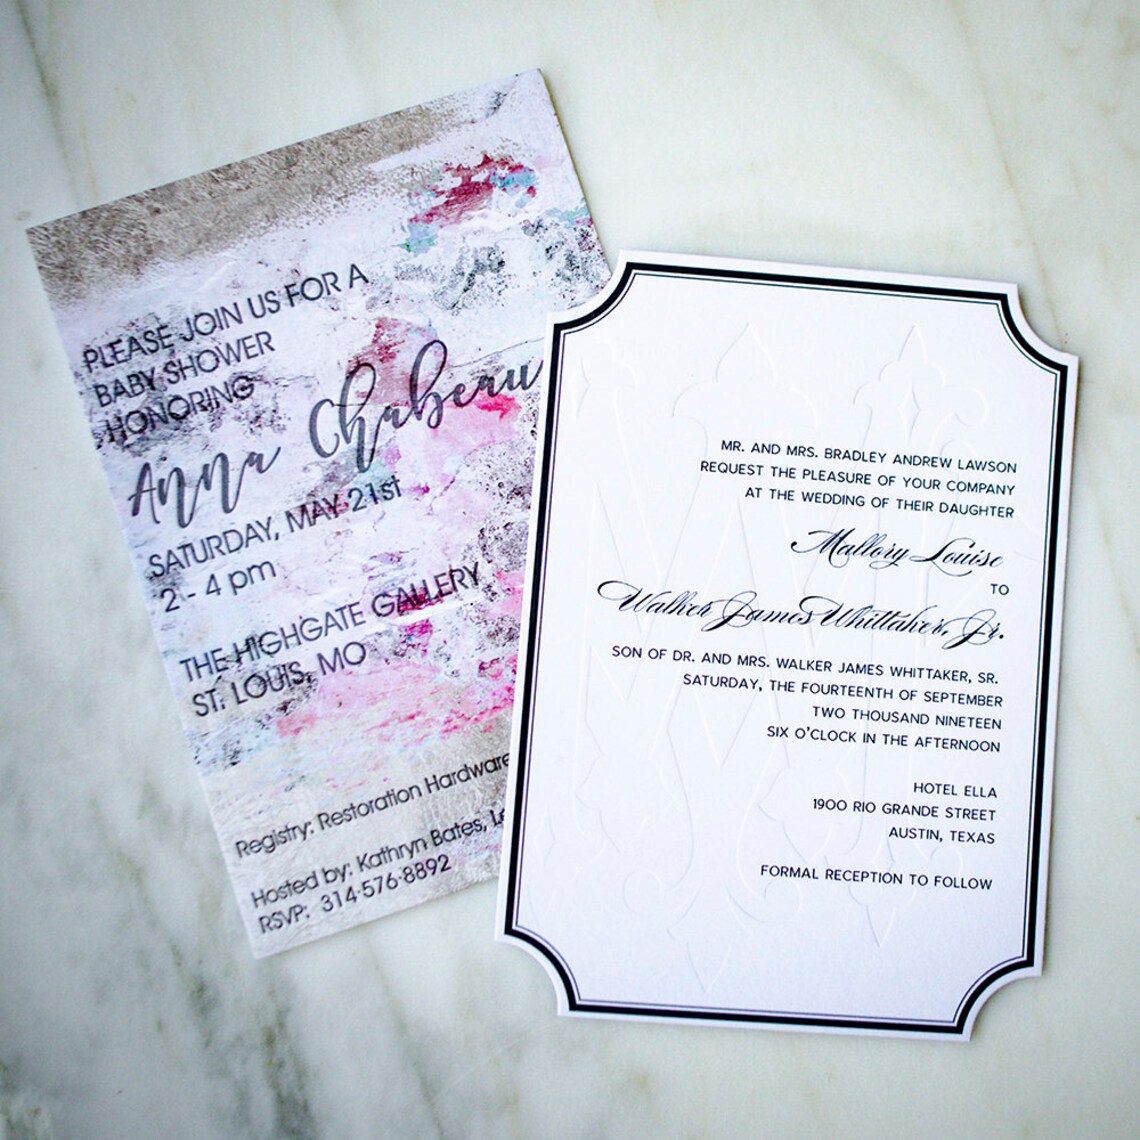 PLEASE JOIN US FOR A
BABY SHOWER
HONORING
Anna Chabeau
SATURDAY, MAY 21st
2 - 4 pm
THE HIGHGATE GALLERY
ST. LOUIS, MO
Registry: Restoration Hardware
Hosted by: Kathryn Bates,
RSVP: 314·576·8892
MR. AND MRS. BRADLEY ANDREW LAWSON
REQUEST THE PLEASURE OF YOUR COMPANY
AT THE WEDDING OF THEIR DAUGHTER
Mallory Louise
TO
Walker James Whittaker, Jr.
SON OF DR. AND MRS. WALKER JAMES WHITTAKER, SR.
SATURDAY, THE FOURTEENTH OF SEPTEMBER
TWO THOUSAND NINETEEN
SIX O'CLOCK IN THE AFTERNOON
HOTEL ELLA
1900 RIO GRANDE STREET
AUSTIN, TEXAS
FORMAL RECEPTION TO FOLLOW